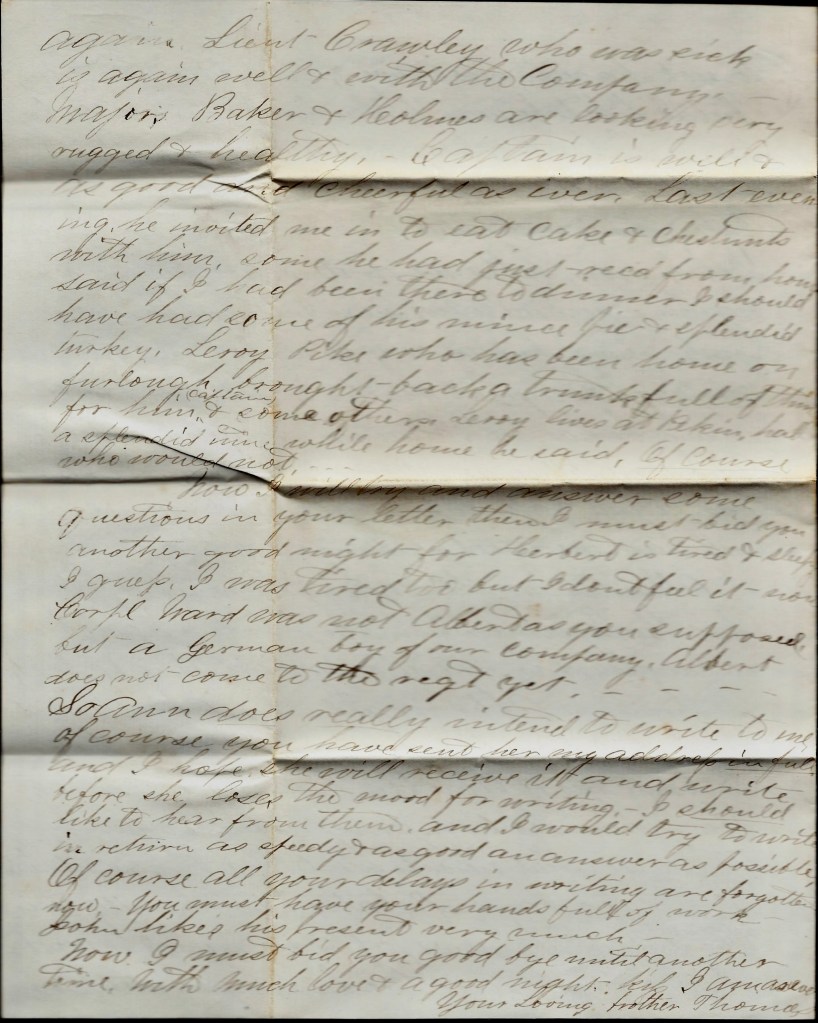 again. Lieut Crawley who was sick
is again well & with the Company. -
Majors Baker & Holmes are looking very
rugged & healthy. - Captain is well &
as good and cheerful as ever. Last even
ing. he invited me in to eat Cake & Chestnuts
with him. some he had just rec'd from home
said if I had been there to dinner I should
have had some of his mince pie & splendid
turkey. Leroy Pike who has been home on
furlough brought back a trunk full of thin
for him Captain & some others Leroy lives at Pekin, had
a splendid time while home he said. Of Course
who would not. . . . .
Now I will try and answer some
questions in your letter then I must bid you
another good night for Herbert is tired & sleepy
I guess. I was tired too but I dont feel it now
Corpl Ward was not Albert as you supposed.
but a German boy of our company. Albert
does not come to the regt yet. - - - -
So Ann does really intend to write to me
of course you have sent her my address in full
and I hope she will receive it and write
before she loses the mood for writing. - I should
like to hear from them. and I would try to write
in return as speedy & as good an answer as possible,
Of course all your delays in writing are forgotten
now, - You must have your hands full of work
John likes his present very much. -
Now I must bid you good bye until another
time. With much love & a good night I am as ever
Your Loving brother Thomas